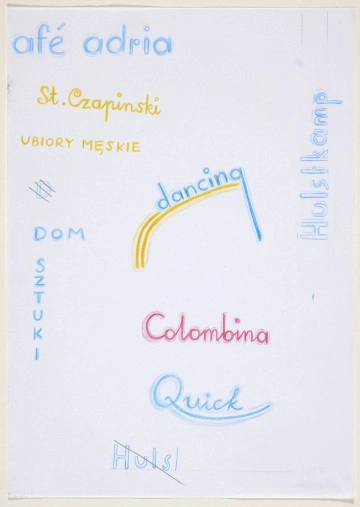 afé adria
St. Czapinski
UBIORY MĘSKIE
Hulstkamp
dancing
DOM
SZTUKI
Colombina
Quick
Huls